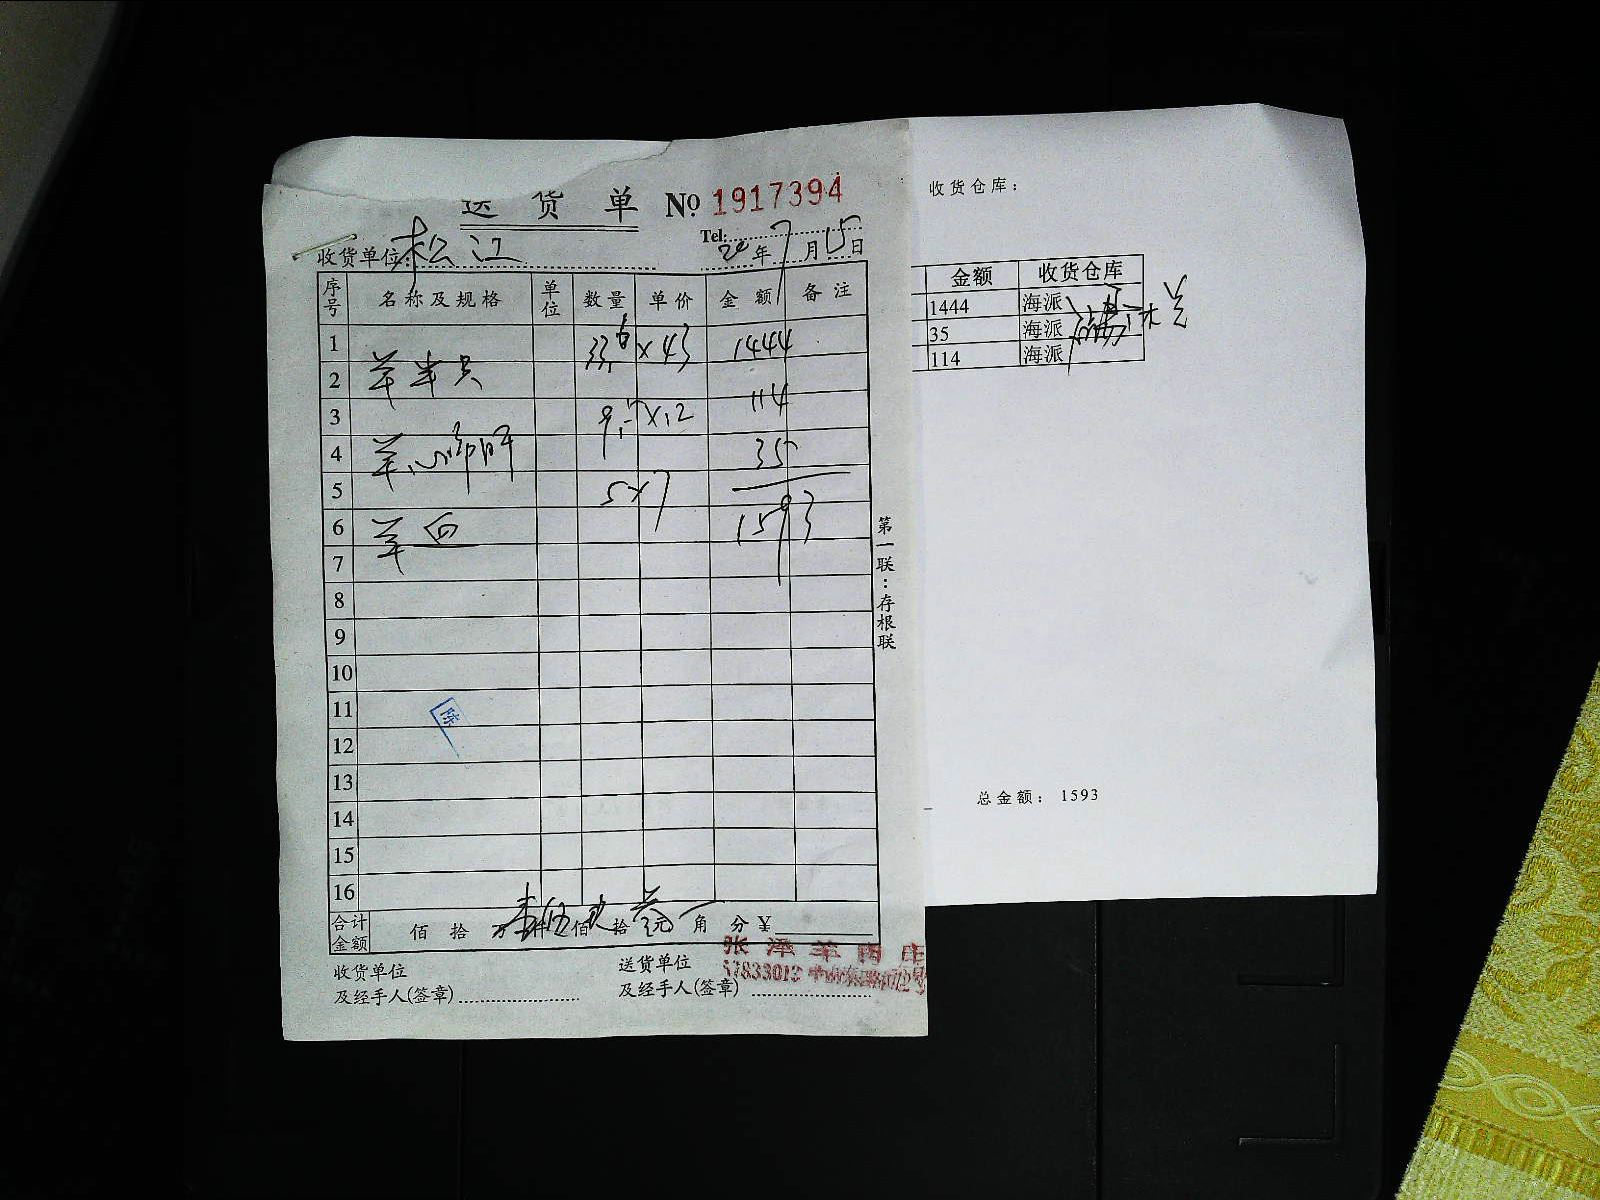 送货单 № 1917394
Tel:
收货单位: 松江 20年7月15日
序号 名称及规格 单位 数量 单价 金额 备注
1 ×43 1444
2 羊半只
3 9.5 ×12 114
4 羊心 35
5 5×7
6 羊血 1593
7
8
9
10
11
12
13
14
15
16
合计金额 佰 拾 万 壹仟 伍佰 玖拾 叁元 角 分 ¥
收货单位 送货单位
及经手人(签章) 及经手人(签章)
张泽羊肉庄
57833013
第一联:存根联
陈
收货仓库:
金额 收货仓库
1444 海派
35 海派
114 海派
总金额: 1593